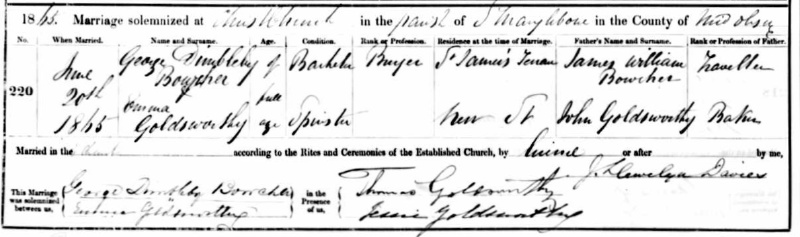 1865. Marriage solemnized at Christ Church in the parish of St Marylebone in the County of Middlesex
No. When Married. Name and Surname. Age. Condition. Rank or Profession. Residence at the time of Marriage. Father's Name and Surname. Rank or Profession of Father.
220 June 20th 1865 George Dimbleby Bowcher of Bachelor Buyer St James's Terrace James William Bowcher Traveller
Emma Goldsworthy full age Spinster New St John Goldsworthy Baker
Married in the Church according to the Rites and Ceremonies of the Established Church, by License or after by me,
J. Llewelyn Davies
This Marriage was solemnized between us, George Dimbleby Bowcher Emma Goldsworthy in the Presence of us, Thomas Goldsworthy Jessie Goldsworthy